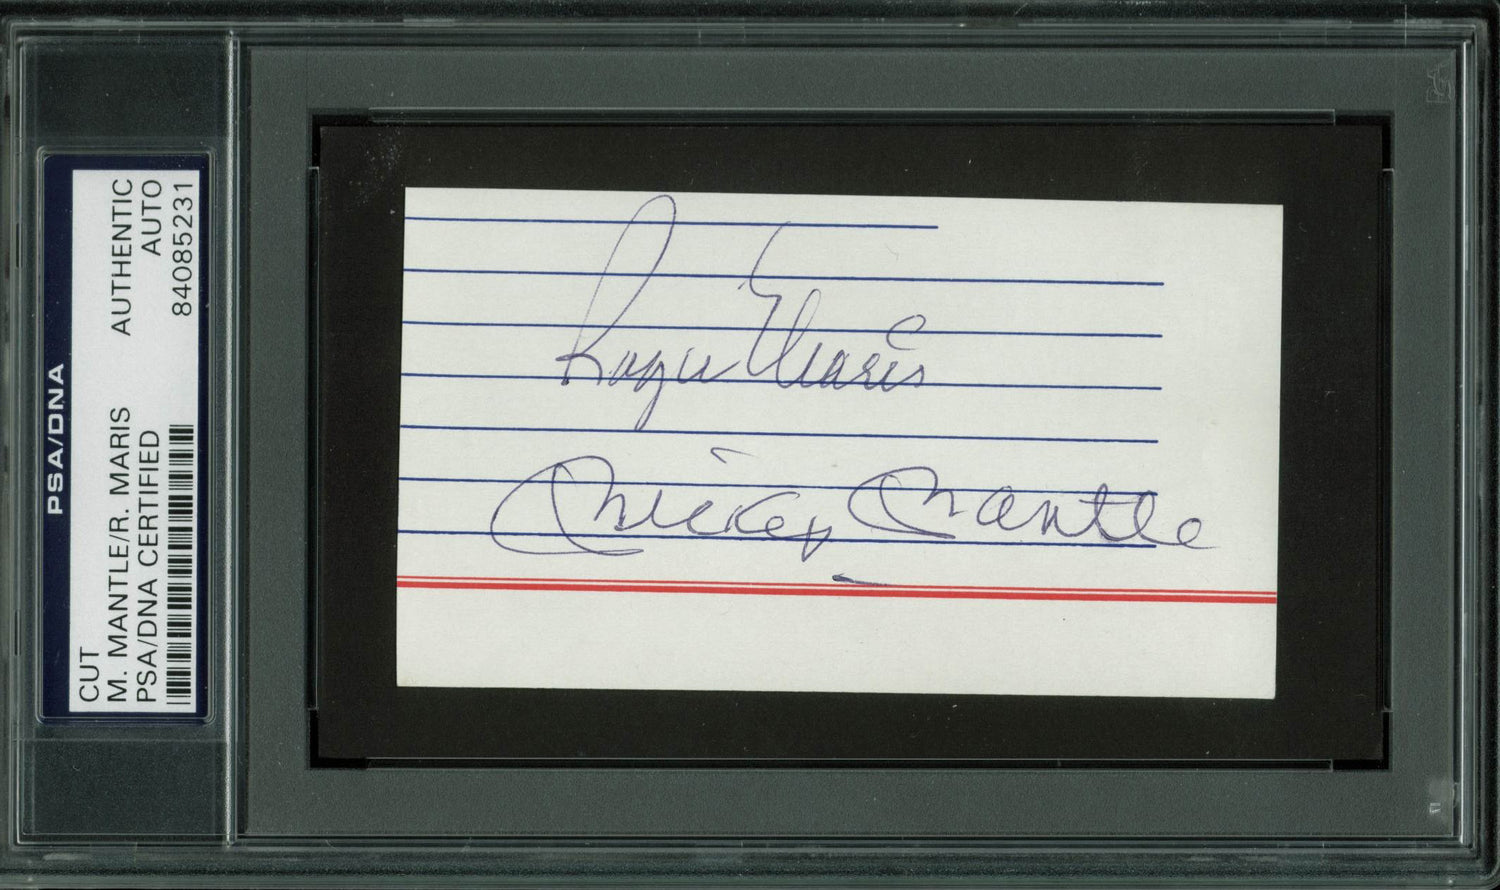 PSA/DNA
CUT
M. MANTLE/R. MARIS AUTHENTIC
PSA/DNA CERTIFIED AUTO
84085231
Roger Maris
Mickey Mantle